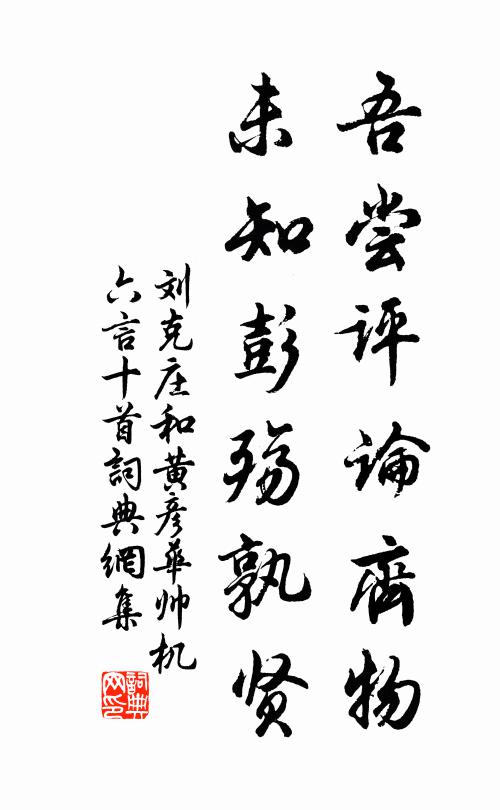 吾尝评論齊物
未知彭殇孰贤
刘克庄和黄彦華帅机
六言十首詞典網集
詞典网印